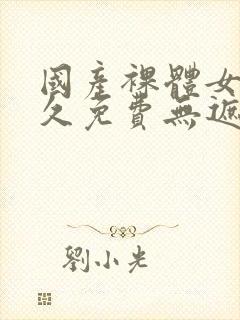 國產裸體女
久免費無遮
劉小光